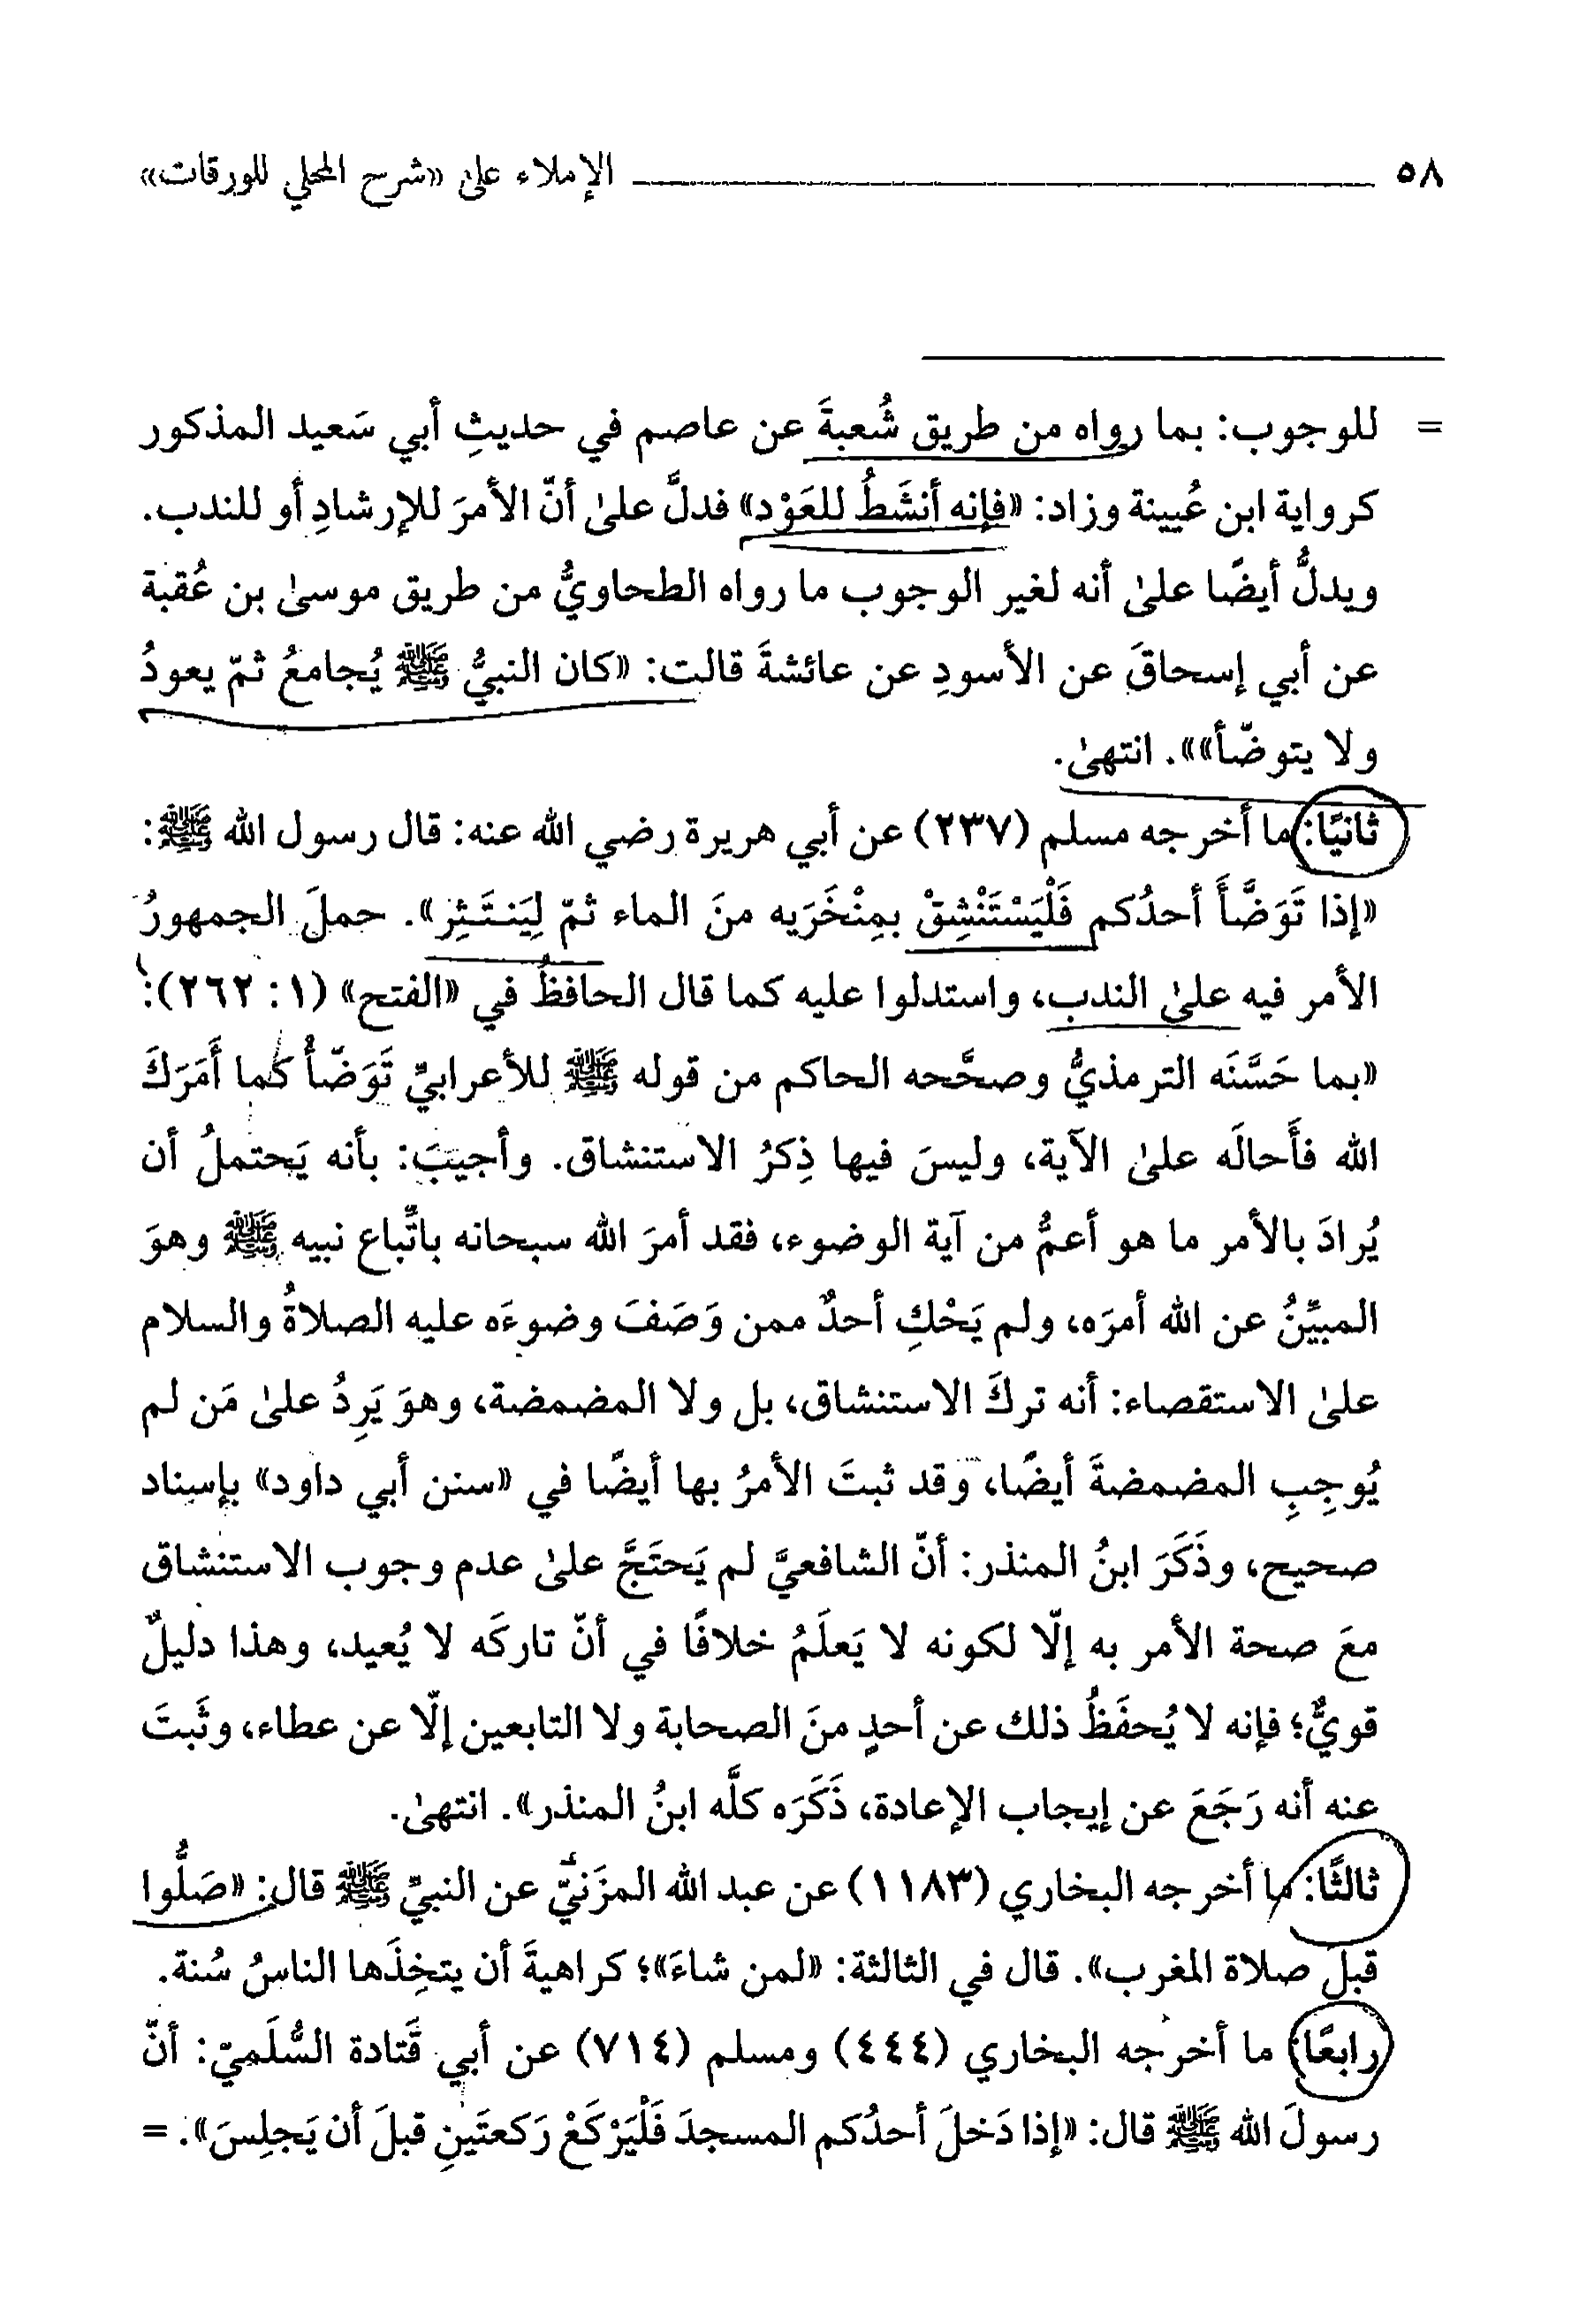 ٥٨ الإملاء على «شرح المحلي للورقات»
= للوجوب: بما رواه من طريق شُعبةَ عن عاصم في حديثِ أبي سَعيد المذكور
كرواية ابن عُيينة وزاد: «فإنه أنشَطُ للعَوْد» فدلَّ علىٰ أنّ الأمرَ للإرشادِ أو للندب.
ويدلُّ أيضًا علىٰ أنه لغير الوجوب ما رواه الطحاويُّ من طريق موسىٰ بن عُقبة
عن أبي إسحاقَ عن الأسودِ عن عائشةَ قالت: «كان النبيُّ ﷺ يُجامعُ ثمّ يعودُ
ولا يتوضّأ»». انتهىٰ.
ثانيًا: ما أخرجه مسلم (٢٣٧) عن أبي هريرة رضي الله عنه: قال رسول الله ﷺ:
«إذا تَوَضَّأَ أحدُكم فَلْيَسْتَنْشِقْ بمِنْخَرَيه منَ الماء ثمّ لِيَنتَثِر». حملَ الجمهورُ
الأمر فيه علىٰ الندب، واستدلوا عليه كما قال الحافظُ في «الفتح» (١: ٢٦٢):
«بما حَسَّنَه الترمذيُّ وصحَّحه الحاكم من قوله ﷺ للأعرابيِّ تَوَضّأْ كما أَمَرَكَ
الله فأَحالَه علىٰ الآية، وليسَ فيها ذِكرُ الاستنشاق. وأجيبَ: بأنه يَحتملُ أن
يُرادَ بالأمر ما هو أعمُّ من آية الوضوء، فقد أمرَ الله سبحانه باتِّباع نبيه ﷺ وهوَ
المبيِّنُ عن الله أمرَه، ولم يَحْكِ أحدٌ ممن وَصَفَ وضوءَه عليه الصلاةُ والسلام
علىٰ الاستقصاء: أنه تركَ الاستنشاق، بل ولا المضمضة، وهوَ يَرِدُ علىٰ مَن لم
يُوجِبِ المضمضةَ أيضًا، وقد ثبتَ الأمرُ بها أيضًا في «سنن أبي داود» بإسناد
صحيح، وذَكَرَ ابنُ المنذر: أنّ الشافعيَّ لم يَحتَجَّ علىٰ عدم وجوب الاستنشاق
معَ صحة الأمر به إلّا لكونه لا يَعلَمُ خلافًا في أنّ تاركَه لا يُعيد، وهذا دليلٌ
قويٌّ؛ فإنه لا يُحفَظُ ذلك عن أحدٍ منَ الصحابة ولا التابعين إلّا عن عطاء، وثَبتَ
عنه أنه رَجَعَ عن إيجاب الإعادة، ذَكَرَه كلَّه ابنُ المنذر». انتهىٰ.
ثالثًا: ما أخرجه البخاري (١١٨٣) عن عبد الله المزَنيّ عن النبيِّ ﷺ قال: «صَلُّوا
قبلَ صلاة المغرب». قال في الثالثة: «لمن شاءَ»؛ كراهيةَ أن يتخِذَها الناسُ سُنة.
رابعًا: ما أخرجه البخاري (٤٤٤) ومسلم (٧١٤) عن أبي قَتادة السُّلَميّ: أنّ
رسولَ الله ﷺ قال: «إذا دَخلَ أحدُكم المسجدَ فَلْيَرْكَعْ رَكعتَينِ قبلَ أن يَجلِسَ». =